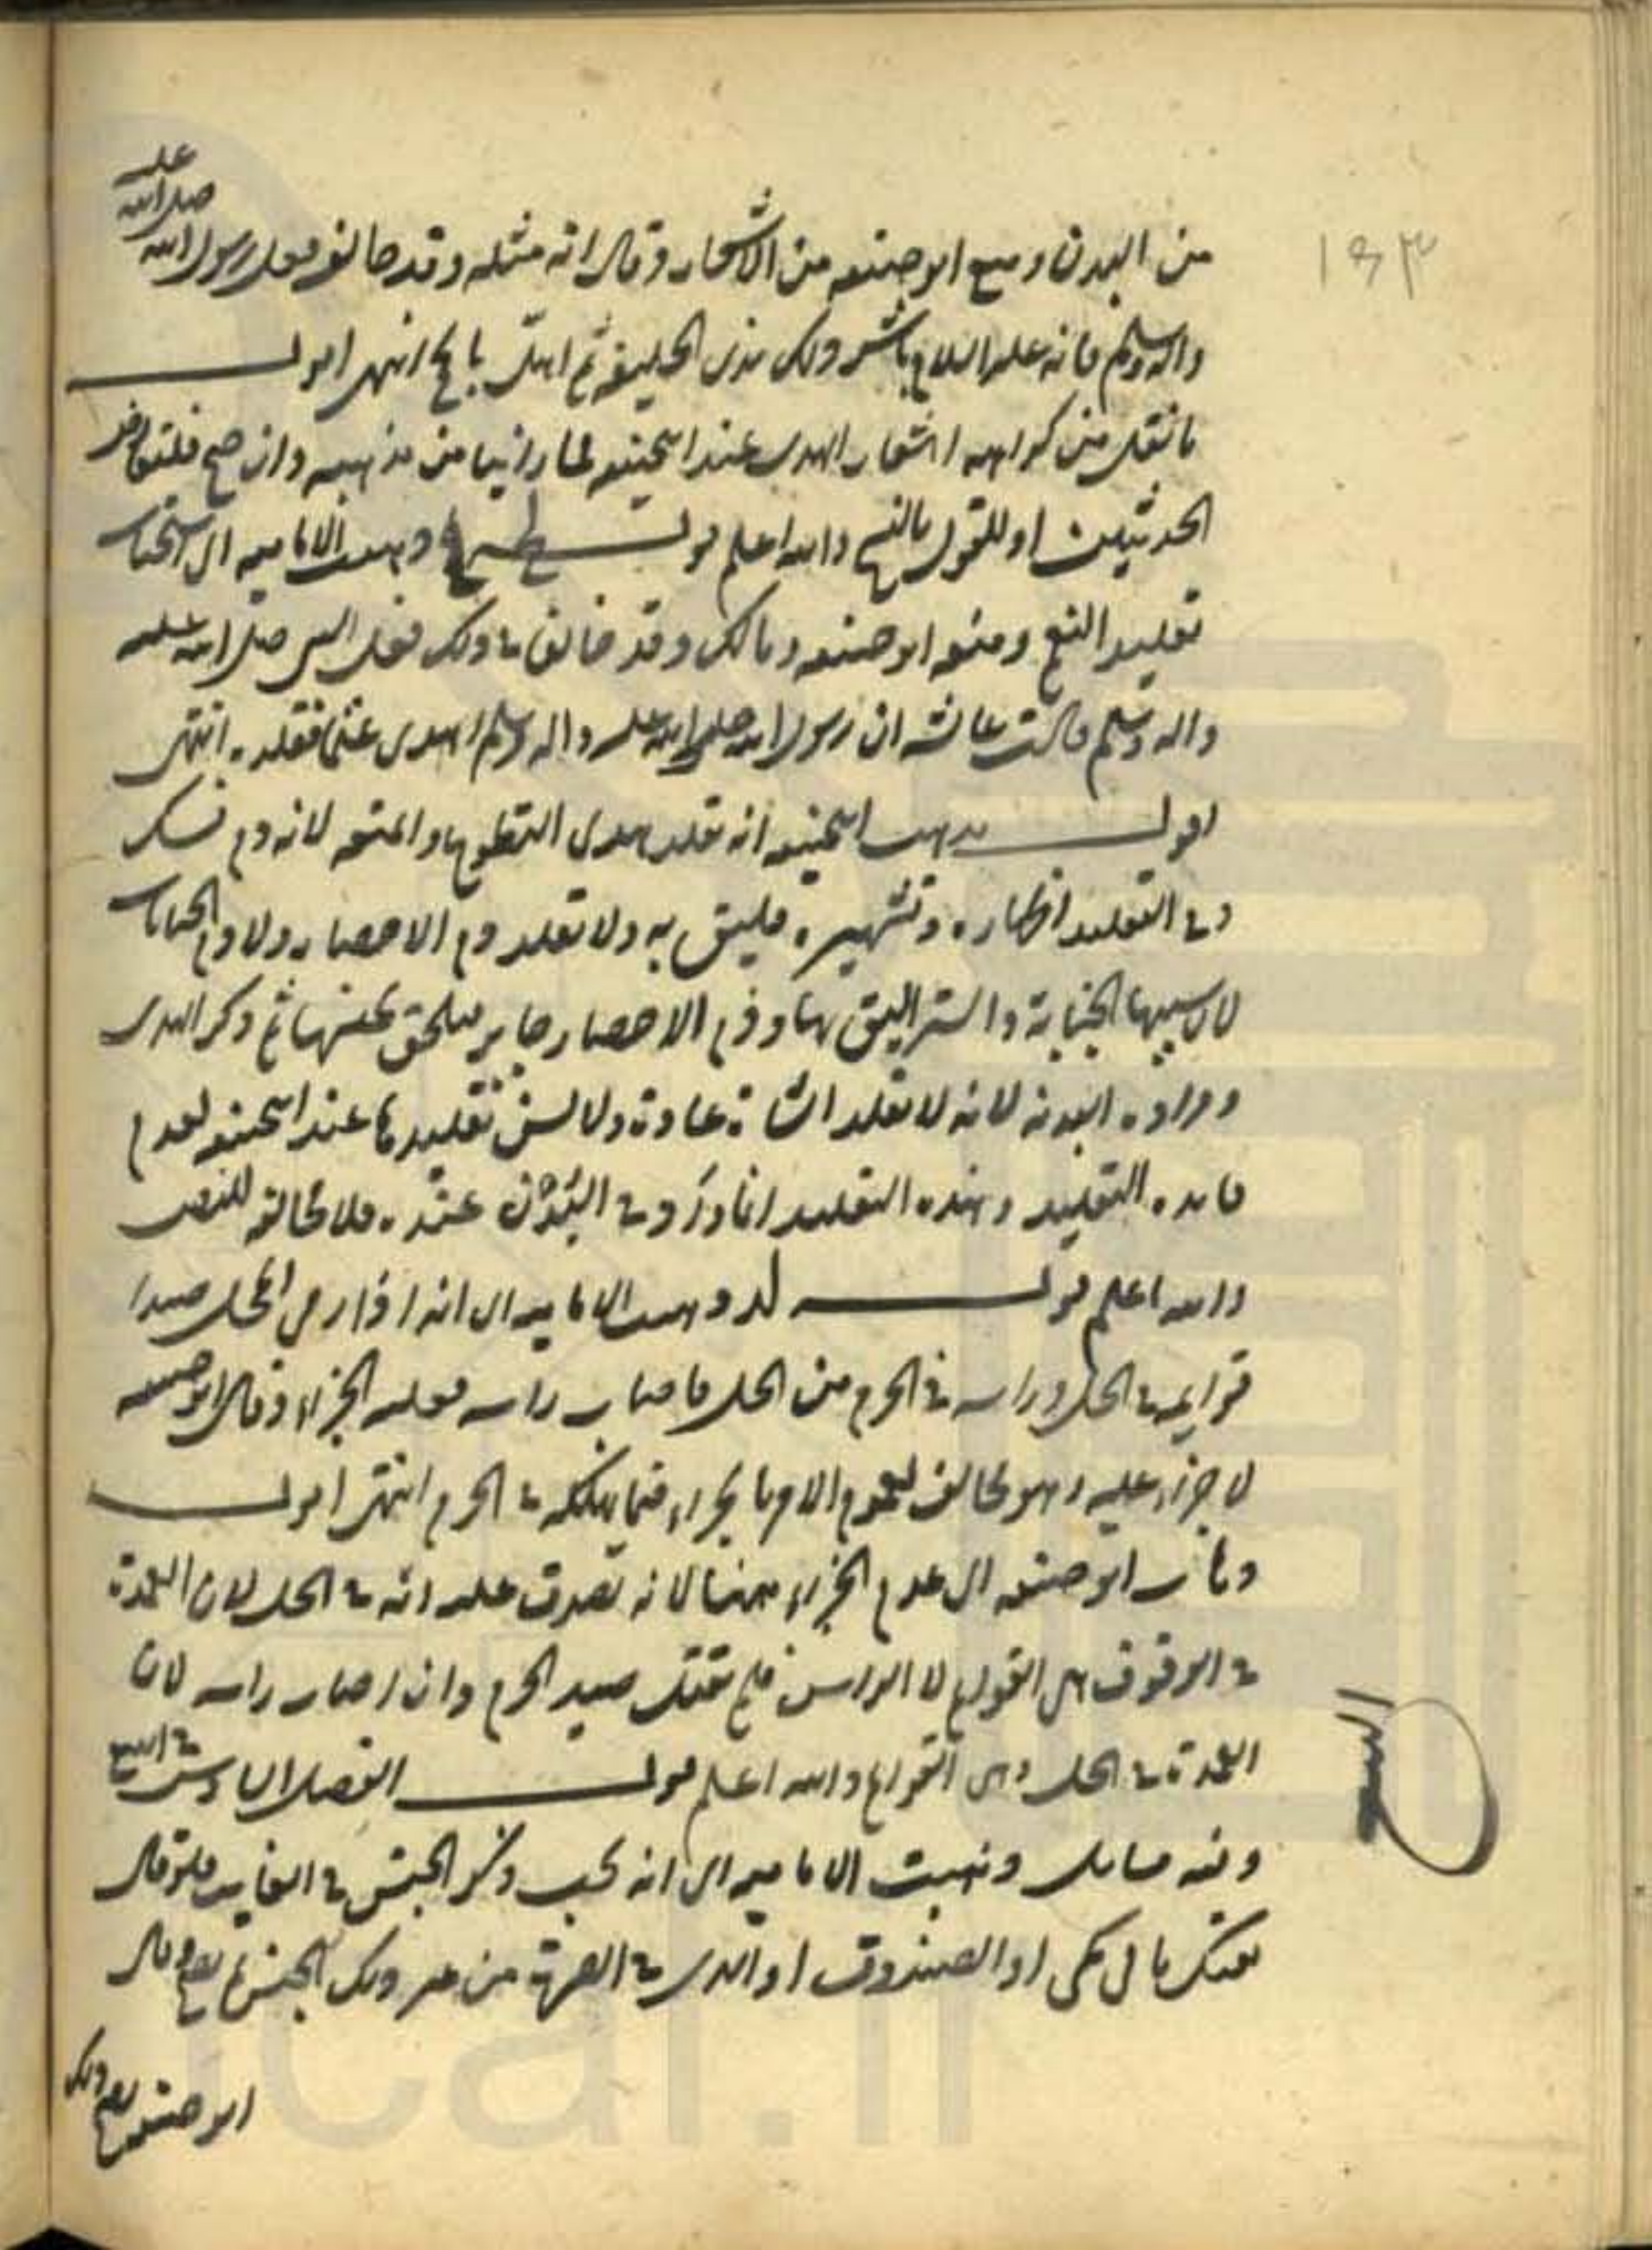 ١٤٣
عليه
صلى الله
من البدن ومنع ابو حنيفه من الاشعار وقال انه مثله وقد خالف فعل رسول الله
واله وسلم فانه عليه السلام باشر ذلك بذى الحليفه ثم اهل بالحج انتهى اقول
ما نقل من كراهه اشعار الهدى عند ابيحنيفه لما راينا من مذهبه وان صح فلتعارض
الحديثين او للقول بالنسخ والله اعلم قوله وذهبت الاماميه الى استحباب
تقليد الغنم ومنعه ابو حنيفه ومالك وقد خالفا فى ذلك فعل النبى صلى الله عليه
واله وسلم قالت عائشه ان رسول الله صلى الله عليه واله وسلم اهدى غنما فقلده انتهى
اقول مذهب ابيحنيفه انه تقلد هدى التطوع والمتعه لانه دم نسك
وفى التقليد اظهاره وتشهيره فليق به ولا تقلد دم الاحصار ولا دم الجنايات
لان سببها الجناية والستر اليق بها ودم الاحصار جابر فيلحق بجنسها ثم ذكر الهدى
ومراده البدنه لانه لا تقلد الشاة عادة ولا يسن تقليدها عند ابيحنيفه لعدم
فايده التقليد وهذه التقليد انما ورد فى البُدْن عنده فلا مخالفه للنص
والله اعلم قوله لد وذهبت الاماميه الى انه اذا رمى المحل صيدا
قوايمه فى الحل وراسه فى الحرم من الحل فاصاب راسه فعليه الجزاء وقال ابو حنيفه
لا جزاء عليه وهو مخالف لعموم الامر بالجزاء فيما يهلكه فى الحرم انتهى اقول
وذهب ابو حنيفه الى عدم الجزاء ههنا لانه يصدق عليه انه فى الحل لان العمدة
فى الوقوف هى القوايم لا الراس فلم يقتل صيد الحرم وان اصاب راسه لان
العمدة فى الحل وهى القوايم والله اعلم قوله الفصل السادس فى البيع
وفيه مسايل وذهبت الاماميه الى انه يجب ذكر الجنس فى الغايب فلو قال
بعتك ما فى كمى او الصندوق او الذى فى البصره من غير ذكر الجنس لم يصح وقال
ابو حنيفه يصح ذلك